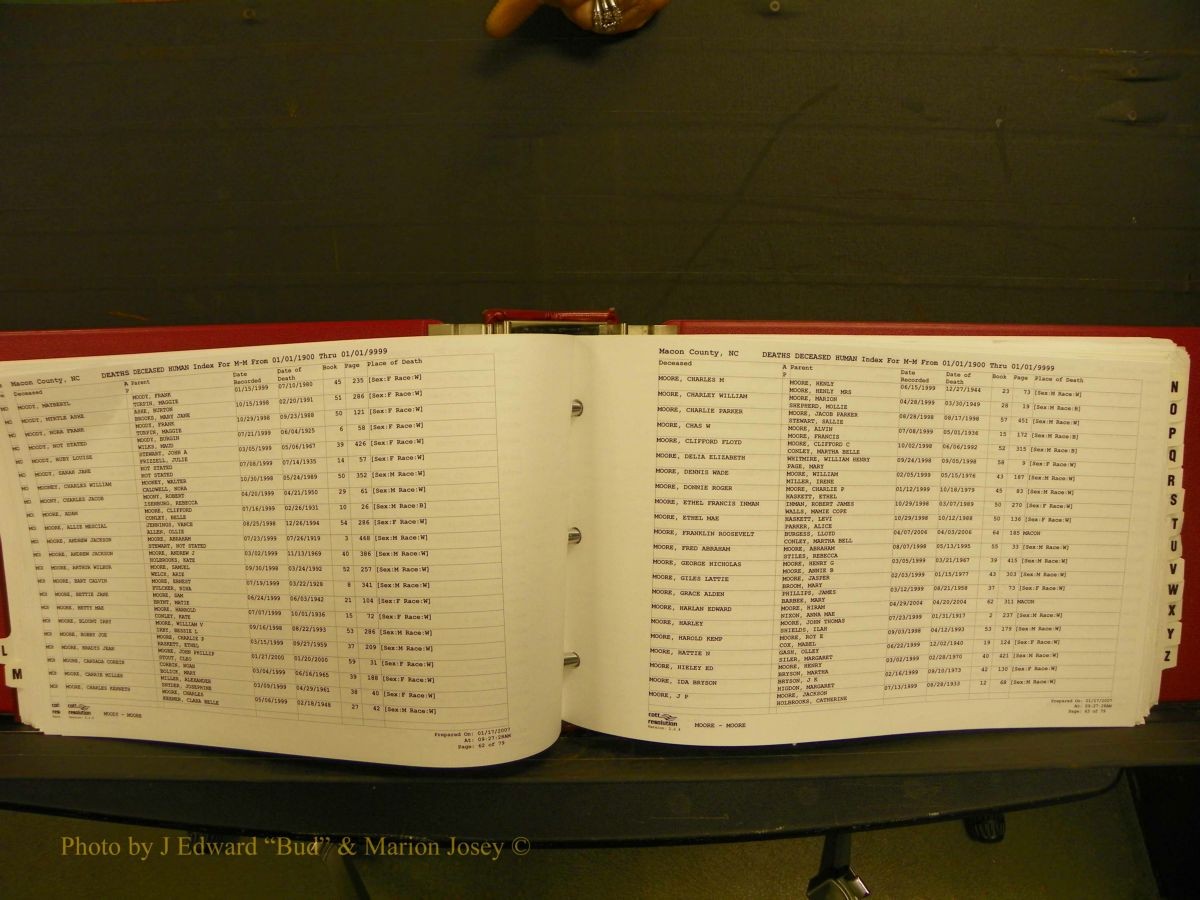 Macon County, NC DEATHS DECEASED HUMAN Index For M-M From 01/01/1900 Thru 01/01/9999
Deceased A Parent Date Recorded Date of Death Book Page Place of Death
P
MOODY, MAYBERYL MOODY, FRANK 01/15/1999 07/10/1980 45 235 [Sex:F Race:W]
TURPIN, MAGGIE
MOODY, MYRTLE ASHE ASHE, BURTON 10/15/1998 02/20/1991 51 286 [Sex:F Race:W]
BROOKS, MARY JANE
MOODY, NORA FRANK MOODY, FRANK 10/29/1998 09/23/1988 50 121 [Sex:F Race:W]
TURPIN, MAGGIE
MOODY, NOT STATED MOODY, BURGIN 07/21/1999 06/04/1925 6 58 [Sex:F Race:W]
WILKS, MAUD
MOODY, RUBY LOUISE STEWART, JOHN A 03/05/1999 05/06/1967 39 426 [Sex:F Race:W]
FRIZZELL, JULIE
MOODY, SARAH JANE NOT STATED 07/08/1999 07/14/1935 14 57 [Sex:F Race:W]
NOT STATED
MOONEY, CHARLES WILLIAM MOONEY, WALTER 10/30/1998 05/24/1989 50 352 [Sex:M Race:W]
CALDWELL, NORA
MOONY, CHARLES JACOB MOONY, ROBERT 04/20/1999 04/21/1950 29 61 [Sex:M Race:W]
ISENBURG, REBECCA
MOORE, ADAM MOORE, CLIFFORD 07/16/1999 02/26/1931 10 26 [Sex:M Race:B]
CONLEY, BELLE
MOORE, ALLIE MESCIAL JENNINGS, VANCE 08/25/1998 12/26/1994 54 286 [Sex:F Race:W]
ALLEN, OLLIE
MOORE, ANDREW JACKSON MOORE, ABRAHAM 07/23/1999 07/26/1919 3 468 [Sex:M Race:W]
STEWART, NOT STATED
MOORE, ANDREW JACKSON MOORE, ANDREW J 03/02/1999 11/13/1969 40 386 [Sex:M Race:W]
HOLBROOKS, KATE
MOORE, ARTHUR WILBUR MOORE, SAMUEL 09/30/1998 03/24/1992 52 257 [Sex:M Race:W]
WELCH, ARIE
MOORE, BART CALVIN MOORE, ERNEST 07/19/1999 03/22/1928 8 341 [Sex:M Race:W]
FULCHER, NINA
MOORE, BETTIE JANE MOORE, SAM 06/24/1999 06/03/1942 21 104 [Sex:F Race:W]
BRYNT, MATIE
MOORE, BETTY MAE MOORE, HARROLD 07/07/1999 10/01/1936 15 72 [Sex:F Race:W]
CONLEY, KATE
MOORE, BLOUNT IRBY MOORE, WILLIAM V 09/16/1998 08/22/1993 53 286 [Sex:M Race:W]
IRBY, BESSIE L
MOORE, BOBBY JOE MOORE, CHARLIE P 03/15/1999 09/27/1959 37 209 [Sex:M Race:W]
HASKETT, ETHEL
MOORE, BRALYS JEAN MOORE, JOHN PHILLIP 01/27/2000 01/20/2000 59 31 [Sex:F Race:W]
STOUT, CLEO
MOORE, CANDADA CORBIN CORBIN, NOAH 03/04/1999 06/16/1965 39 188 [Sex:F Race:W]
BOLICK, MARY
MOORE, CARRIE MILLER MILLER, ALEXANDER 03/09/1999 04/29/1961 38 40 [Sex:F Race:W]
SNYDER, JOSEPHINE
MOORE, CHARLES KENNETH MOORE, CHARLES 05/06/1999 02/18/1948 27 42 [Sex:M Race:W]
KERMER, CLARA BELLE
cott
resolution
MOODY - MOORE
Prepared On: 01/17/2007
At: 09:27:28AM
Page: 62 of 79
L
M
Macon County, NC DEATHS DECEASED HUMAN Index For M-M From 01/01/1900 Thru 01/01/9999
Deceased A Parent Date Recorded Date of Death Book Page Place of Death
P
MOORE, CHARLES M MOORE, HENLY 06/15/1999 12/27/1944 23 73 [Sex:M Race:W]
MOORE, HENLY MRS
MOORE, CHARLEY WILLIAM MOORE, MARION 04/28/1999 03/30/1949 28 19 [Sex:M Race:B]
SHEPHERD, MOLLIE
MOORE, CHARLIE PARKER MOORE, JACOB PARKER 08/28/1998 08/17/1998 57 451 [Sex:M Race:W]
STEWART, SALLIE
MOORE, CHAS W MOORE, ALVIN 07/08/1999 05/01/1936 15 172 [Sex:M Race:B]
MOORE, FRANCIS
MOORE, CLIFFORD FLOYD MOORE, CLIFFORD C 10/02/1998 06/06/1992 52 315 [Sex:M Race:B]
CONLEY, MARTHA BELLE
MOORE, DELIA ELIZABETH WHITMIRE, WILLIAM HENRY 09/24/1998 09/05/1998 58 3 [Sex:F Race:W]
PAGE, MARY
MOORE, DENNIS WADE MOORE, WILLIAM 02/05/1999 05/15/1976 43 187 [Sex:M Race:W]
MILLER, IRENE
MOORE, DONNIE ROGER MOORE, CHARLIE P 01/12/1999 10/18/1979 45 83 [Sex:M Race:W]
HASKETT, ETHEL
MOORE, ETHEL FRANCIS INMAN INMAN, ROBERT JAMES 10/29/1998 03/07/1989 50 270 [Sex:F Race:W]
WALLS, MAMIE COPE
MOORE, ETHEL MAE HASKETT, LEVI 10/29/1998 10/12/1988 50 136 [Sex:F Race:W]
PARKER, ALICE
MOORE, FRANKLIN ROOSEVELT BURGESS, LLOYD 04/07/2006 04/03/2006 64 185 MACON
CONLEY, MARTHA BELL
MOORE, FRED ABRAHAM MOORE, ABRAHAM 08/07/1998 05/13/1995 55 33 [Sex:M Race:W]
STILES, REBECCA
MOORE, GEORGE NICHOLAS MOORE, HENRY G 03/05/1999 03/21/1967 39 415 [Sex:M Race:W]
MOORE, ANNIE B
MOORE, GILES LATTIE MOORE, JASPER 02/03/1999 01/15/1977 43 303 [Sex:M Race:W]
BROOM, MARY
MOORE, GRACE ALDEN PHILLIPS, JAMES 03/12/1999 08/21/1958 37 73 [Sex:F Race:W]
BARBEE, MARY
MOORE, HARLAN EDWARD MOORE, HIRAM 04/29/2004 04/20/2004 62 311 MACON
NIXON, ANNA MAE
MOORE, HARLEY MOORE, JOHN THOMAS 07/23/1999 01/31/1917 2 237 [Sex:M Race:W]
SHIELDS, ILAH
MOORE, HAROLD KEMP MOORE, ROY E 09/03/1998 04/12/1993 53 179 [Sex:M Race:W]
COX, MABEL
MOORE, HATTIE N GASH, OLLEY 06/22/1999 12/02/1940 19 124 [Sex:F Race:W]
SILER, MARGARET
MOORE, HIELEY ED MOORE, HENRY 03/02/1999 02/28/1970 40 421 [Sex:M Race:W]
BRYSON, MARTHA
MOORE, IDA BRYSON BRYSON, J K 02/16/1999 09/10/1973 42 130 [Sex:F Race:W]
HIGDON, MARGARET
MOORE, J P MOORE, JACKSON 07/13/1999 08/28/1933 12 68 [Sex:M Race:W]
HOLBROOKS, CATHERINE
cott
resolution
MOORE - MOORE
Prepared On: 01/17/2007
At: 09:27:28AM
Page: 63 of 79
N
O
P
Q
R
S
T
U
V
W
X
Y
Z
Photo by J Edward “Bud” & Marion Josey ©